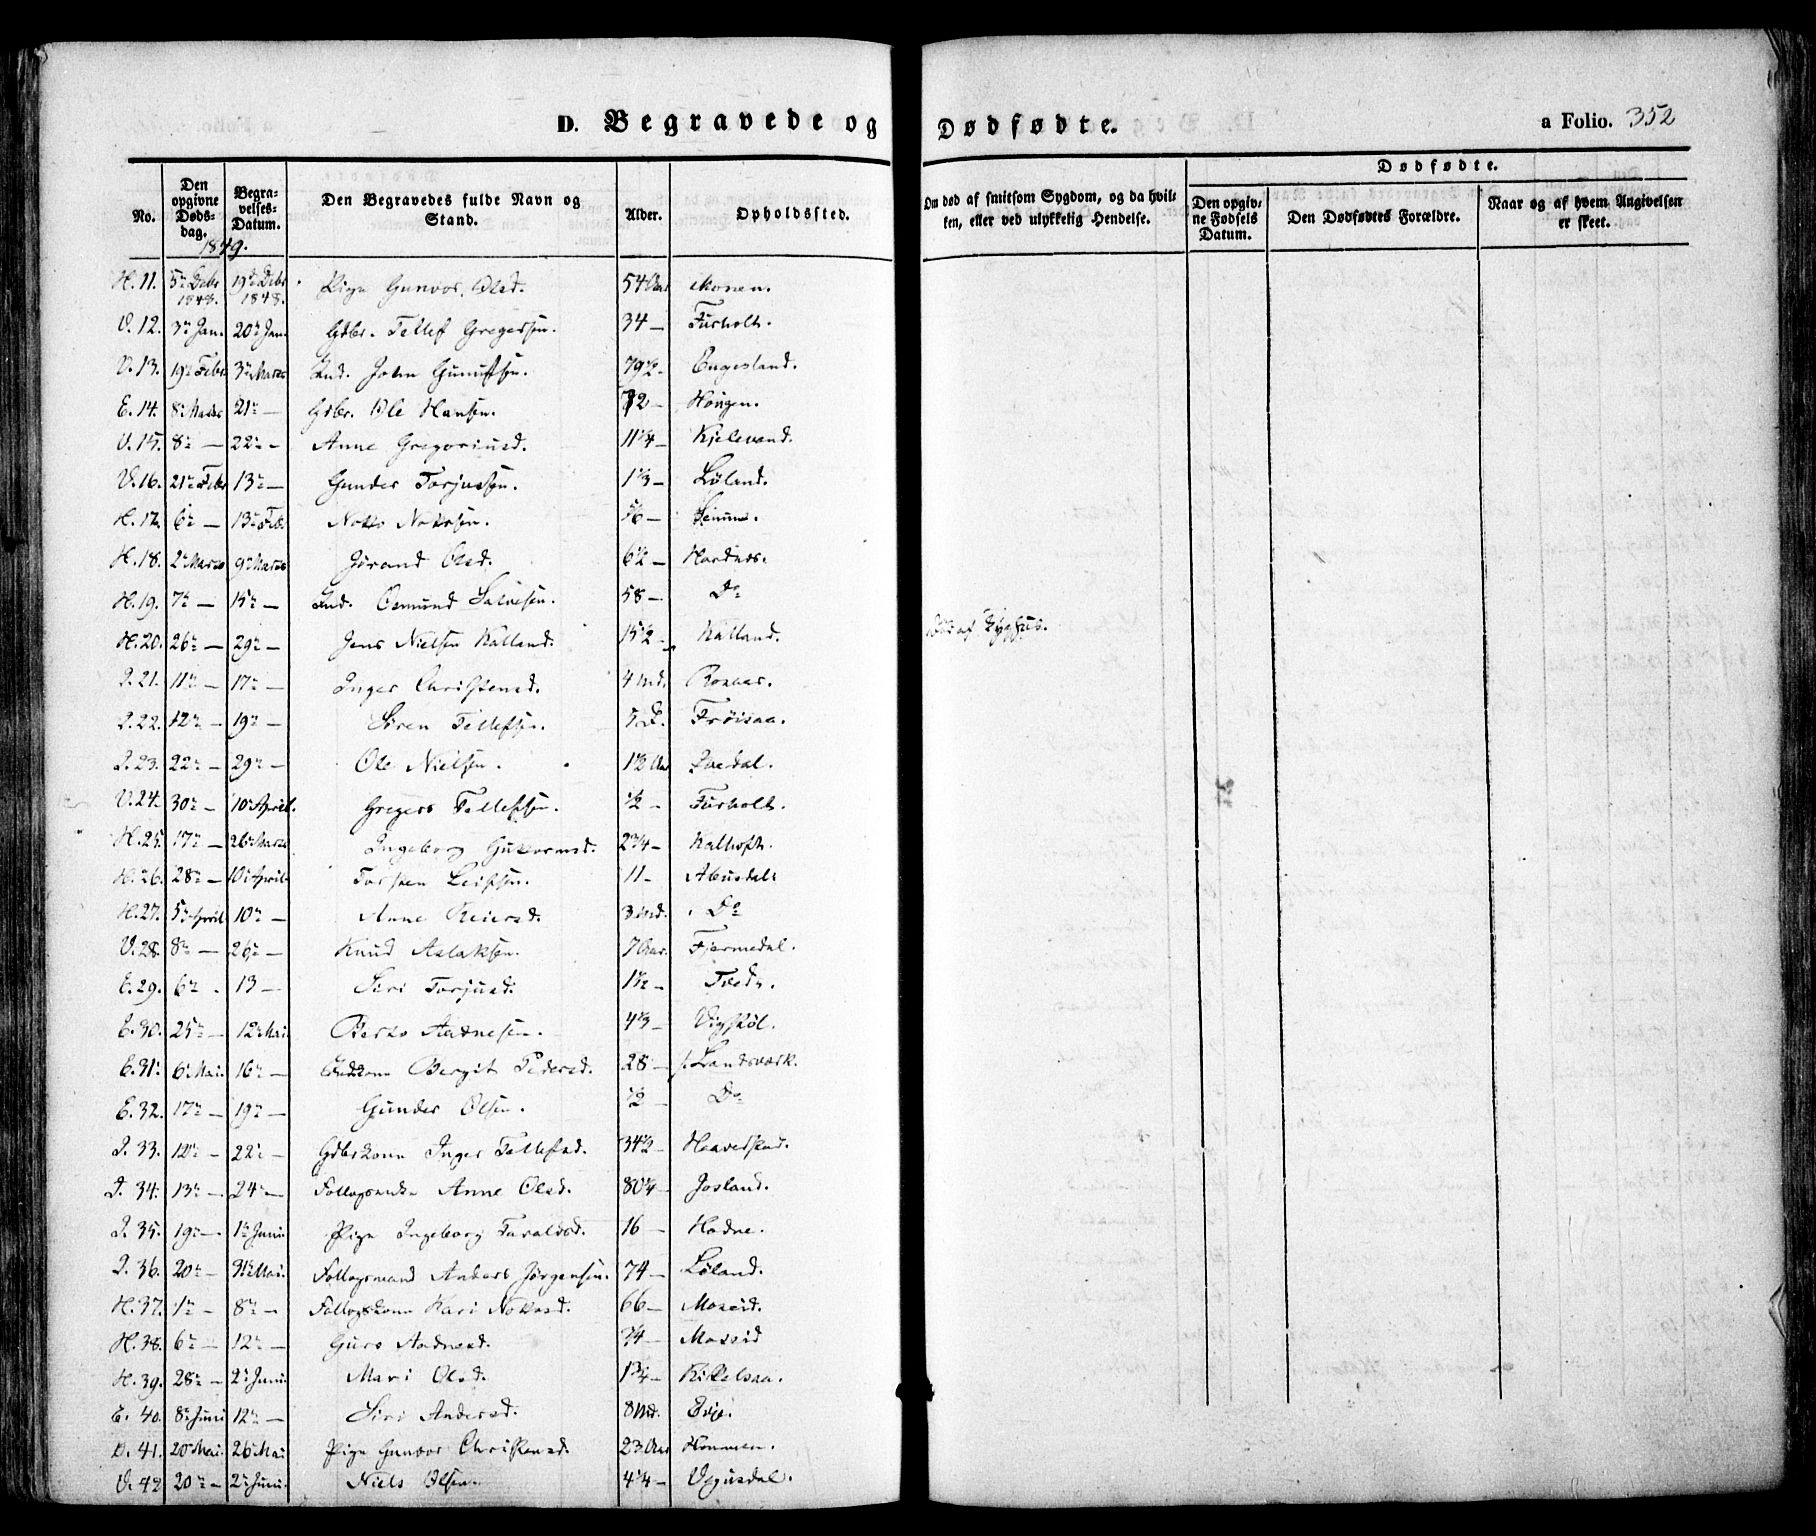 D. Begravede og Dødfødte. a Folio. 352
No. | Den opgivne Dødsdag. | Begravelses-Datum. | Den Begravedes fulde Navn og Stand. | Alder. | Opholdssted. | Om død af smitsom Sygdom, og da hvilken, eller ved ulykkelig Hendelse. | Dødfødte. | Den opgivne Fødsels Datum. | Den Dødfødtes Forældre. | Naar og af hvem Angivelsen er skeet.
1849.
H. 11. 5te Debr 1848. 19de Debr 1848. Pige Gunvor Olsd. 54 Aar Monen.
V. 12. 3die Jan. 20de Jan. Gdbr. Tellef Gregersen. 34 — Furholt.
V. 13. 19de Febr 3die Marts Ind. John Gunulfsen. 79½ — Engesland.
E. 14. 8de Marts 21de — Gdbr. Ole Hansen. 72 — Hougen.
V. 15. 8de — 22de — Anne Gregoriusd. 11¼ — Kjelevand.
V. 16. 21de Febr 13de — Gunder Torjussen. 1⅓ — Løland.
H. 17. 6te — 13de Feb. Noto Notosen.
H. 18. 2den Marts 9de Marts Jorand Olsd. 6½ — Hordnes.
H. 19. 7de — 15de — Ind. Osmund Salvesen. 58 — Do
H. 20. 26de — 29de — Jens Nielsen Kalland. 15½ — Kalland. Død af Typhus.
I. 21. 11te — 17de — Inger Christensd. 4 Md. Rosaas.
I. 22. 12te — 19de — Søren Tellefsen. 5 D. Frøisaa.
I. 23. 22de — 29de — Ole Nielsen. 1½ Aar
V. 24. 30te — 10de April. Gregers Tellefsen. ½ — Furholt.
H. 25. 17de — 26de Marts Ingeborg Guttormsd. 2¾ — Kalhoft.
H. 26. 28de — 10de April. Torsten Leifsen. 11 — Abusdal.
H. 27. 5te April 10de — Anne Reiersd. 3 Md. Do
V. 28. 8de — 26de — Knud Aslaksen. 7 Aar. Fjermedal.
E. 29. 6te — 13 — Siri Torjusd. 1½ — Tveds.
E. 30. 25de — 12te Mai Berto Aadnesen. 4⅓ — Vigskøl.
E. 31. 6te Mai. 16de — Bergit Pedersd. 28 — Landsværk.
E. 32. 17de — 19de — Gunder Olsen. ½ — Do
I. 33. 12te — 22de — Gdbrkone Inger Tellefsd. 34½ — Haavedstad.
I. 34. 13de — 24de — Follogsenke Anne Olsd. 80¼ — Josland.
I. 35. 19de — 1ste Juni. Pige Ingeborg Taraldsd. 16 — Hodne.
I. 36. 20de — 31te Mai. Follogsmand Anders Jørgensen. 74 — Løland.
H. 37. 1ste — 8de — Follogskone Kari Notosd. 66 — Moseid.
H. 38. 6te — 12te — Guro Aadnesd. ¾ — Moseid
H. 39. 28de — 2den Juni. Mari Olsd. 1¾ — Kittelsaa.
E. 40. 8de Juni 12te — Siri Andersd. 8 Md. Evje.
V. 41. 20de Mai. 26de Mai Pige Gunvor Christensd. 23 Aar Hommen.
V. 42 20de — 2den Juni. Niels Olsen. 4¼ — Vegusdal.